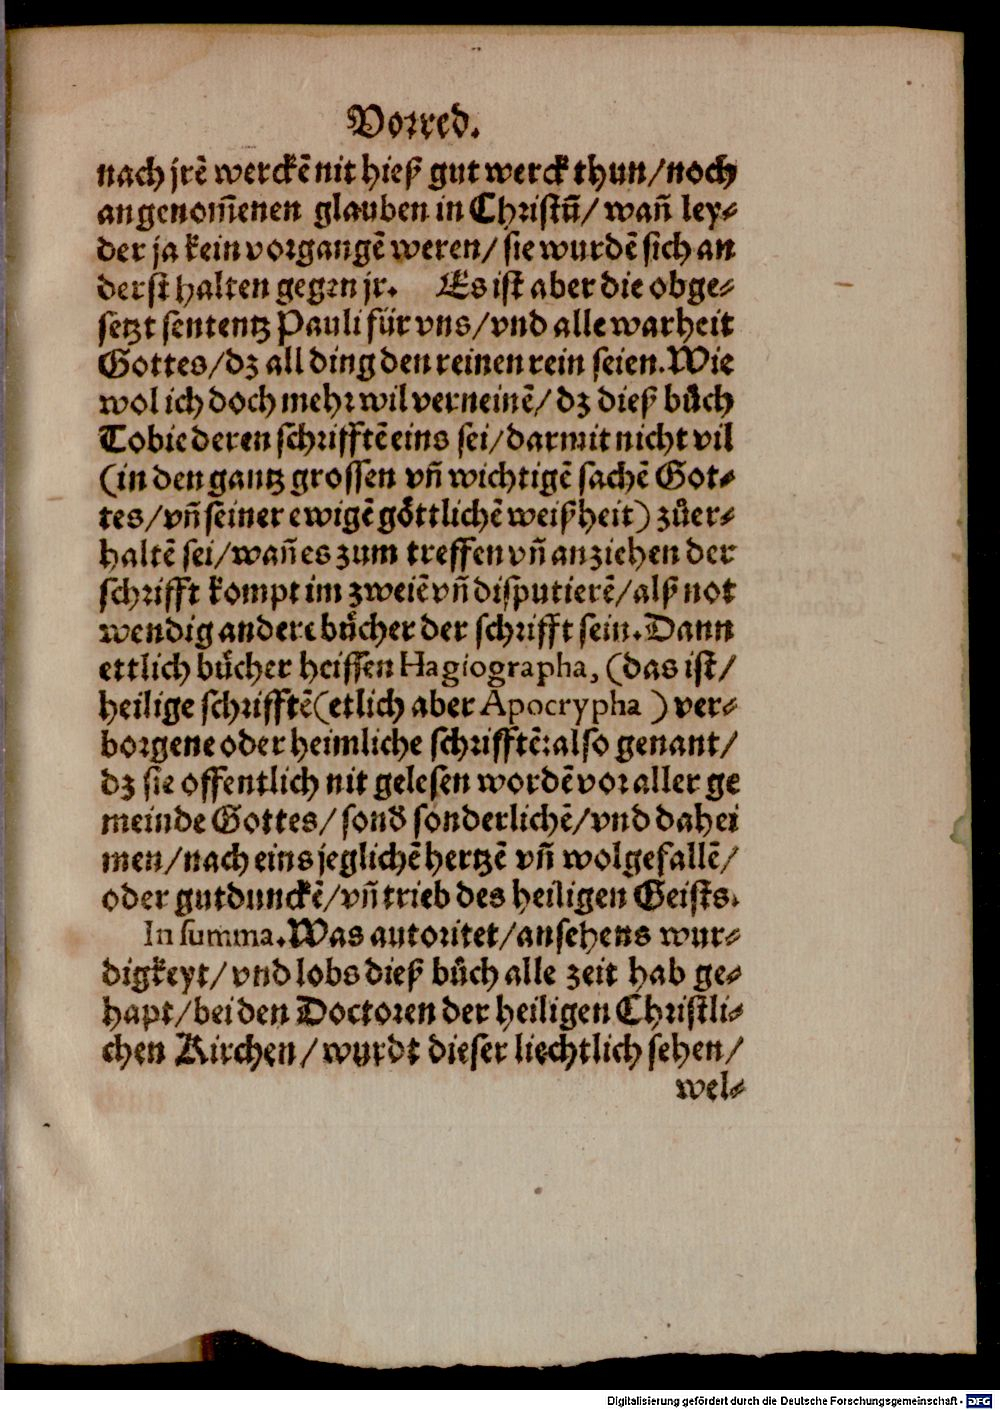 Vorred.
nach jrē werckē nit hieß gut werck thun/noch
angenom̄enen glauben in Christū/ wañ ley⸗
der ja kein vorgangē weren/ sie wurdē sich an
derst halten gegen jr. Es ist aber die obge⸗
setzt sententz Pauli für vns/vnd alle warheit
Gottes/dz all ding den reinen rein seien. Wie
wol ich doch mehr wil verneinē/ dz dieß bůch
Tobie deren schrifftē eins sei/darmit nicht vil
(in den gantz grossen vñ wichtigē sachē Got⸗
tes/vñ seiner ewigē göttlichē weißheit) zůer⸗
haltē sei/wañ es zum treffen vñ anziehen der
schrifft kompt im zweiē vñ disputierē/alß not
wendig andere bücher der schrifft sein. Dann
ettlich bücher heissen Hagiographa, (das ist/
heilige schrifftē(etlich aber Apocrypha ) ver⸗
borgene oder heimliche schrifftē:also genant/
dz sie offentlich nit gelesen wordē vor aller ge
meinde Gottes/ sond̄ sonderlichē/vnd dahei
men/nach eins jeglichē hertzē vñ wolgefallē/
oder gutdunckē/vñ trieb des heiligen Geists.
In summa. Was autoritet/ansehens wur⸗
digkeyt/vnd lobs dieß bůch alle zeit hab ge⸗
hapt/bei den Doctoren der heiligen Christli⸗
chen Kirchen/wurdt dieser liechtlich sehen/
wel⸗
Digitalisierung gefördert durch die Deutsche Forschungsgemeinschaft - DFG